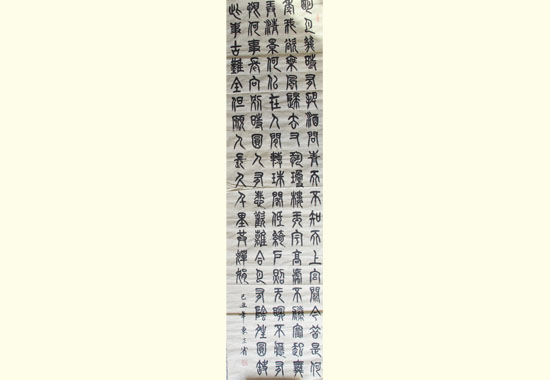 明月幾時有把酒問青天不知天上宮闕今昔是何
年我欲乘風歸去又恐瓊樓玉宇高處不勝寒起舞
弄清影何似在人間轉珠閣低綺戶照无眠不應有
恨何事長向別時圓人有悲歡離合月有陰晴圓缺
此事古難全但願人長久千里共嬋娟
己丑年